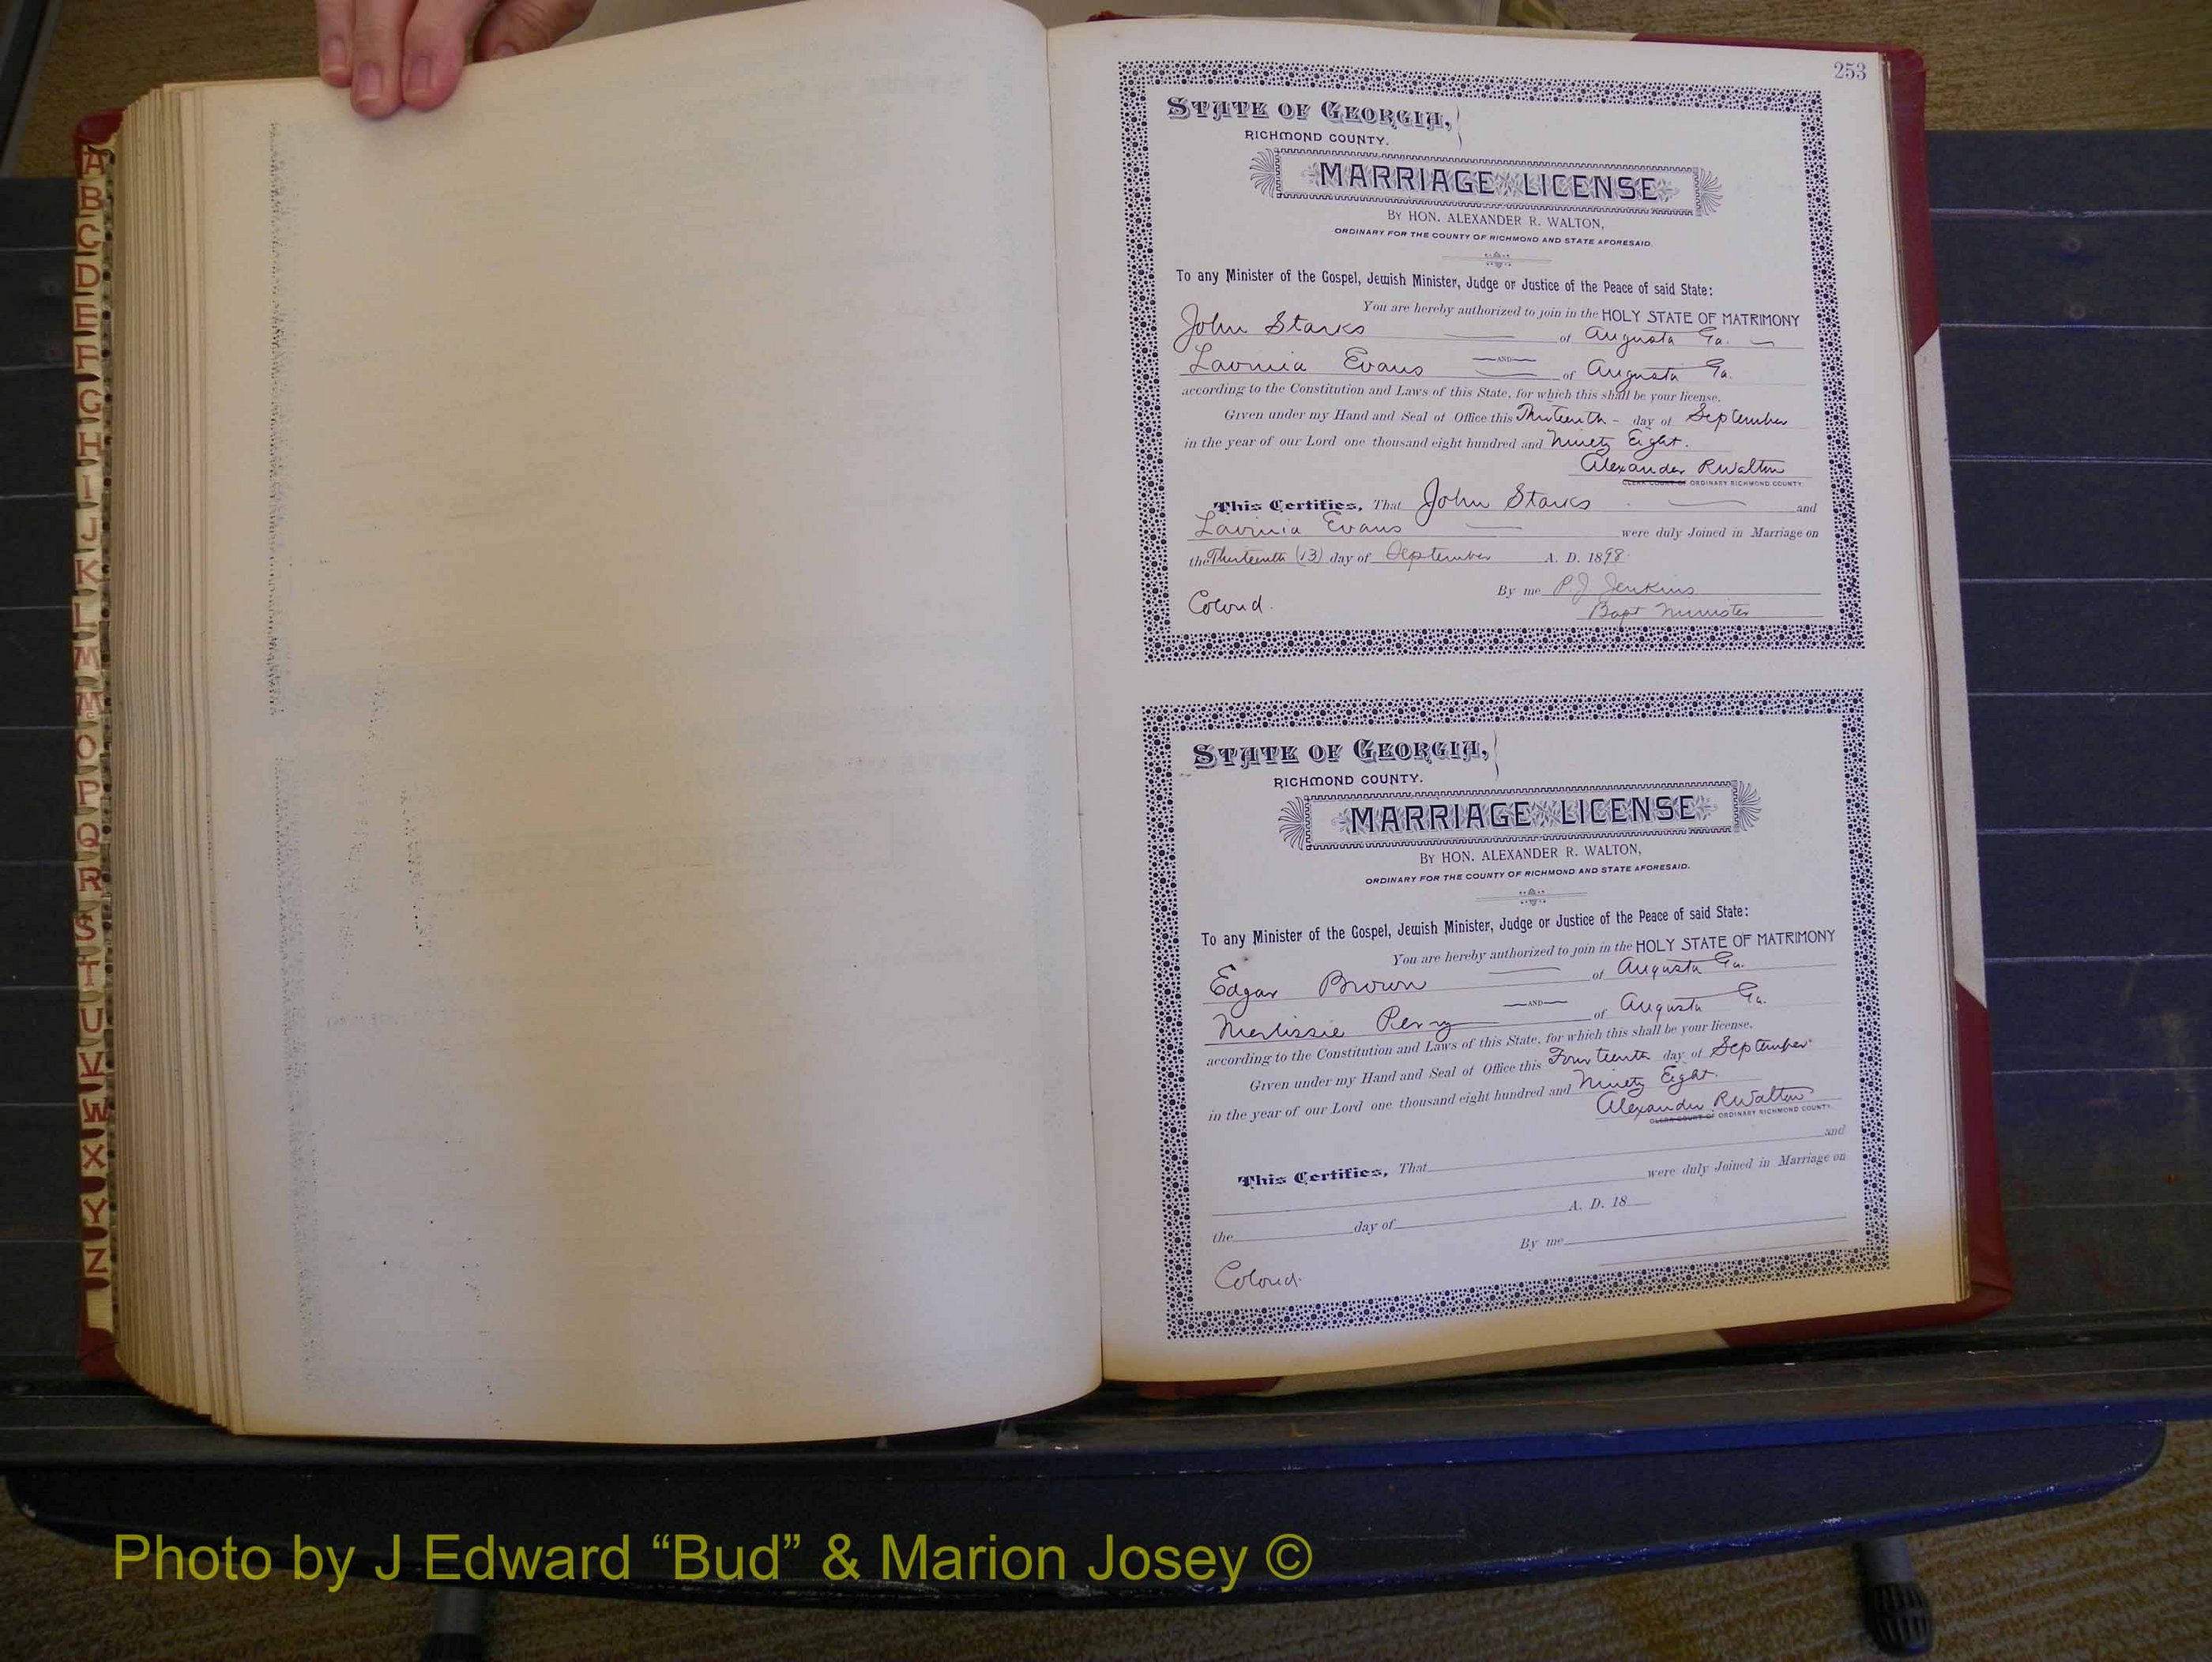 A
B
C
D
E
F
G
H
I
J
K
L
M
Mc
O
P
Q
R
S
T
U
V
W
X
Y
Z
253
STATE OF GEORGIA,
RICHMOND COUNTY.
MARRIAGE LICENSE
BY HON. ALEXANDER R. WALTON,
ORDINARY FOR THE COUNTY OF RICHMOND AND STATE AFORESAID.
To any Minister of the Gospel, Jewish Minister, Judge or Justice of the Peace of said State:
You are hereby authorized to join in the HOLY STATE OF MATRIMONY
John Starks of Augusta Ga.
AND
Lavinia Evans of Augusta Ga.
according to the Constitution and Laws of this State, for which this shall be your license.
Given under my Hand and Seal of Office this Thirteenth day of September
in the year of our Lord one thousand eight hundred and Ninety Eight.
Alexander R Walton
CLERK COURT OF ORDINARY RICHMOND COUNTY.
This Certifies, That John Starks and
Lavinia Evans were duly Joined in Marriage on
the Thirteenth (13) day of September A. D. 1898
By me P. J. Jenkins
Colord. Bapt Minister
STATE OF GEORGIA,
RICHMOND COUNTY.
MARRIAGE LICENSE
BY HON. ALEXANDER R. WALTON,
ORDINARY FOR THE COUNTY OF RICHMOND AND STATE AFORESAID.
To any Minister of the Gospel, Jewish Minister, Judge or Justice of the Peace of said State:
You are hereby authorized to join in the HOLY STATE OF MATRIMONY
Edgar Brown of Augusta Ga.
AND
Merlissie Perry of Augusta Ga.
according to the Constitution and Laws of this State, for which this shall be your license.
Given under my Hand and Seal of Office this Fourteenth day of September
in the year of our Lord one thousand eight hundred and Ninety Eight.
Alexander R Walton
CLERK COURT OF ORDINARY RICHMOND COUNTY.
This Certifies, That and
were duly Joined in Marriage on
the day of A. D. 18
By me
Colord.
Photo by J Edward “Bud” & Marion Josey ©